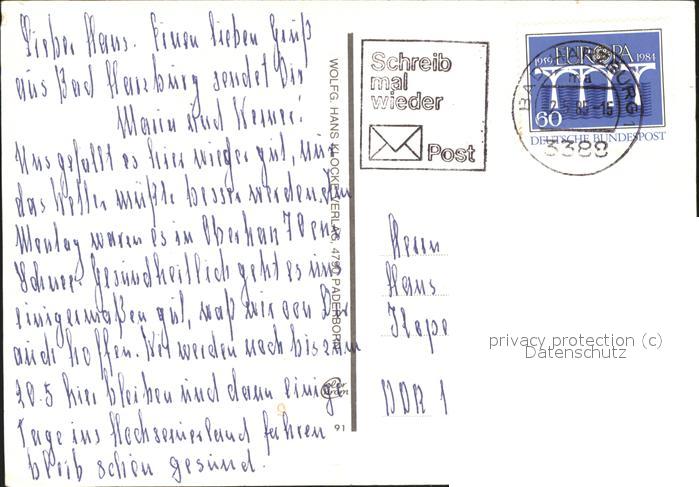 Lieber Hans. Einen lieben Gruß
aus Bad Harzburg sendet Dir
Maria und Werner.
Uns gefällt es hier wieder gut, nur
das Wetter müßte besser werden. Am
Montag waren es in Oberharz 70 cm
Schnee. Gesundheitlich geht es uns
einigermaßen gut, was wir von Dir
auch hoffen. Wir werden noch bis zum
20.5 hier bleiben und dann einige
Tage ins Hochsauerland fahren
bleib schön gesund.
WOLFG. HANS KLOCKE VERLAG, 4790 PADERBORN
color
91
Schreib
mal
wieder
Post
1959 EUROPA 1984
60
DEUTSCHE BUNDESPOST
BAD HARZBURG
ma
85-15
3388
Herrn
Hans
Kope
DDR 1
privacy protection (c)
Datenschutz